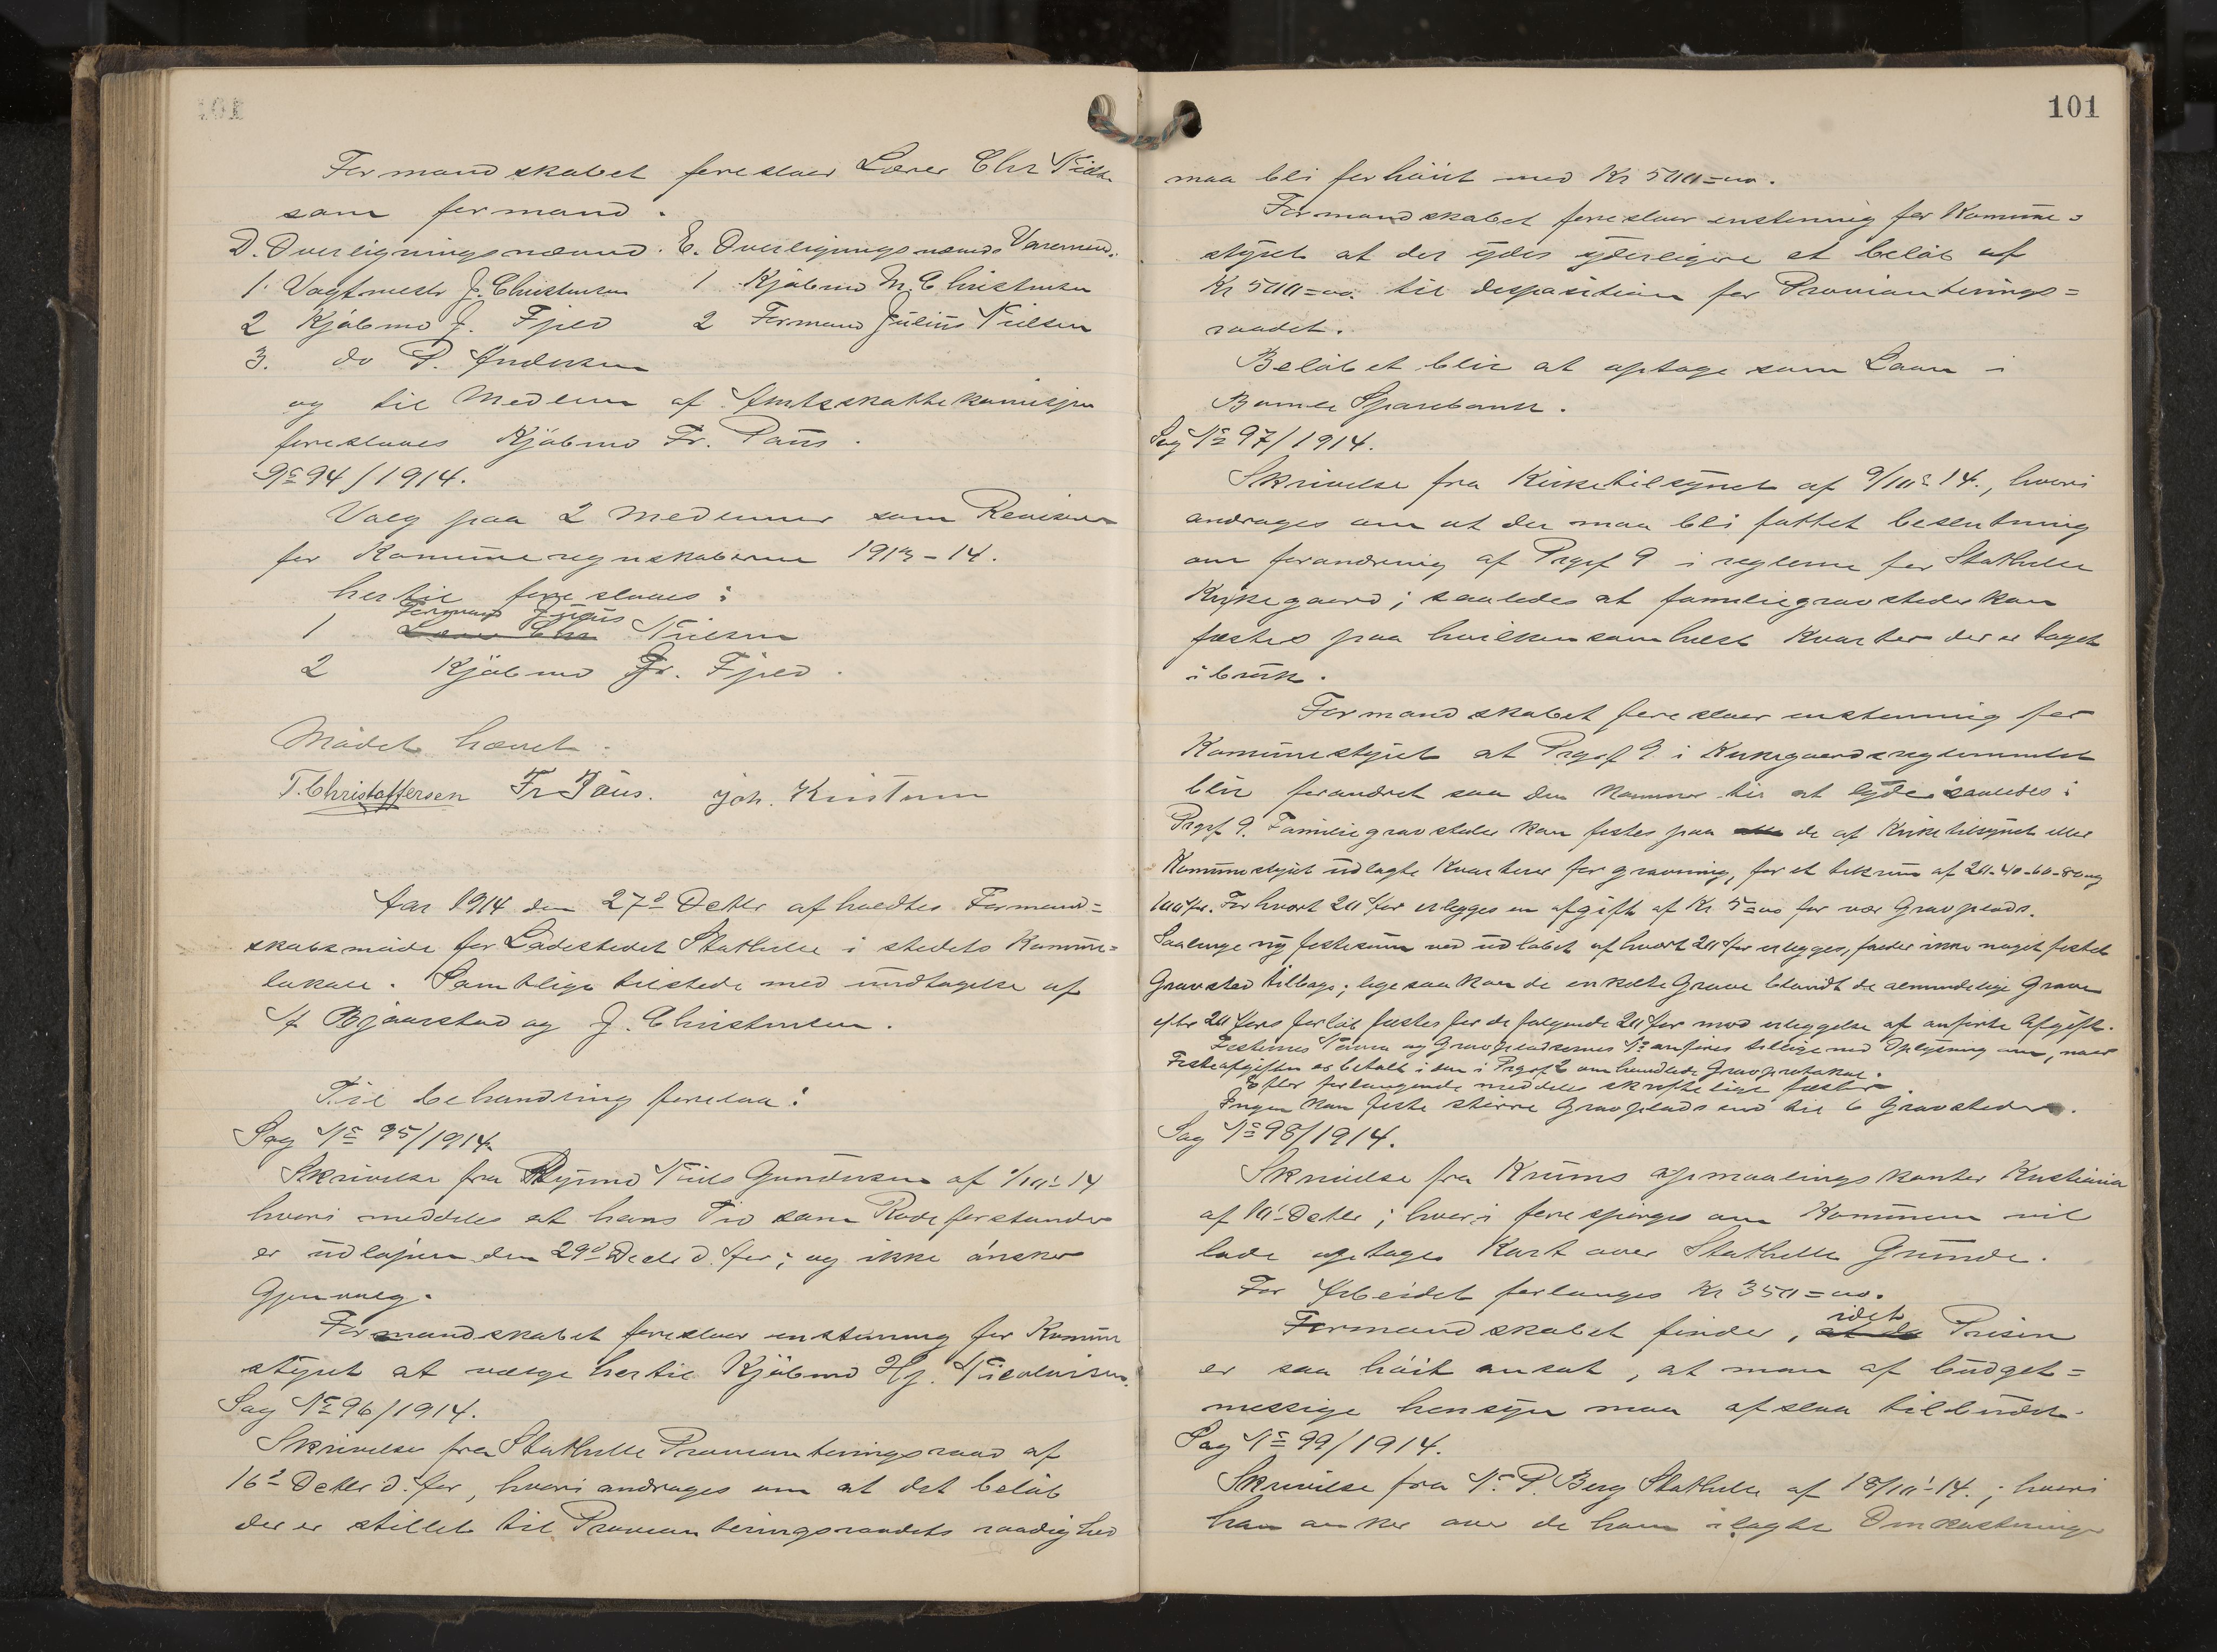 Formandskabet foreslaar Lærer Chr Niels.
som formand.
D. Overligningsnævnd. E. Overligningsnævnds Varamænd.
1. Vagtmestr J. Christensen 1 Kjøbmd M. Christensen
2 Kjøbmd J. Fjeld 2 Formand Julius Nielsen
3. do P. Andersen
og til Medlem af Amtsskattekomisjon
foreslaaes Kjøbmd Fr. Paus.
No 94/1914.
Valg paa 2 Medlemmer som Revisorer
for Komuneregnskaberne 1913-14.
hertil foreslaaes:
Formand Julius
1 Lærer Chr Nielsen
2 Kjøbmd Fr. Fjeld.
Mødet hævet.
T. Christoffersen Fr Paus. Joh. Kristensen
Aar 1914 den 27d Octbr afholdtes Formand=
skabsmøde for Ladestedet Stathelle i stedets Komune=
lokale. Samtlige tilstede med undtagelse af
A Bjaarstad og J. Christensen.
Til behandling forelaa:
Sag No 95/1914.
Skrivelse fra Styrmd Niels Gundersen af 1/10-14
hvori meddeles at hans Tid som Rodeforstander
er udløpen den 29d Decbr d. Aar; og ikke ønsker
Gjenvalg.
Formandskabet foreslaar enstemmig for Komune
styret at vælge hertil Kjøbmd Hj. Nicolaisen.
Sag No 96/1914.
Skrivelse fra Stathelle Provianteringsraad af
16d Octbr d. Aar, hvori andrages om at det beløb
der er stillet til Provianteringsraadets raadighed
101
maa bli forhøiet med Kr 500=00.
Formandskabet foreslaar enstemmig for Komune=
styret at der ydes yderligere et beløb af
Kr 500=00. til desposition for Provianterings=
raadet.
Beløbet blir at optage som Laan i
Bamle Sparebank.
Sag No 97/1914.
Skrivelse fra Kirketilsynet af 9/10-14., hvori
andrages om at der maa bli fattet beslutning
om forandring af Prgrf 9 i reglerne for Stathelle
Kirkegaard; saaledes at familiegravsteder kan
fæstes paa hvilkensomhelst Kvarter der er taget
i bruk.
Formandskabet foreslaar enstemmig for
Komunestyret at Prgrf 9 i Kirkegaardsreglementet
blir forandret saa den kommer til at lyde saaledes:
Prgrf 9. Familiegravsteder kan festes paa de af Kirketilsynet eller
Komunestyret udlagte Kvarterer for gravning, for et tidsrum af 20-40-60-80 og
100 Aar. For hvert 20 Aar erlægges en afgift af Kr 5=00 for vær Gravplads.
Saalænge ny festesum ved udløbet af hvert 20 Aar erlægges, falder ikke noget festet
Gravsted tilbage; lige saa kan de enkelte Grave blandt de almindelige Grave
efter 20 Aars forløb fæstes for de følgende 20 Aar mod erlæggelse af anførte Afgift.
Festernes Navn og Gravpladsernes No anføres tillige med Oplysning om, naar
Festeafgiften er betalt i den i Prgrf 2 omhandlede Gravprotokol.
Efter forlangende meddeles skriftelige fæster.
Ingen kan feste større Gravplads end til 6 Gravsteder.
Sag No 98/1914.
Skrivelse fra Krums opmaalingskontor Kristiania
af 10d Octbr; hvori forespørges om Kommunen vil
lade optage Kart over Stathelle Grunde.
For Arbeidet forlanges Kr 350=00.
idet
Formandskabet finder, at da Prisen
er saa høit ansat, at man af budget=
messige hensyn maa afslaa tilbudet.
Sag No 99/1914.
Skrivelse fra N. P. Berg Stathelle af 18/10-14.; hvori
han anker over de ham ilagte Omkostninger